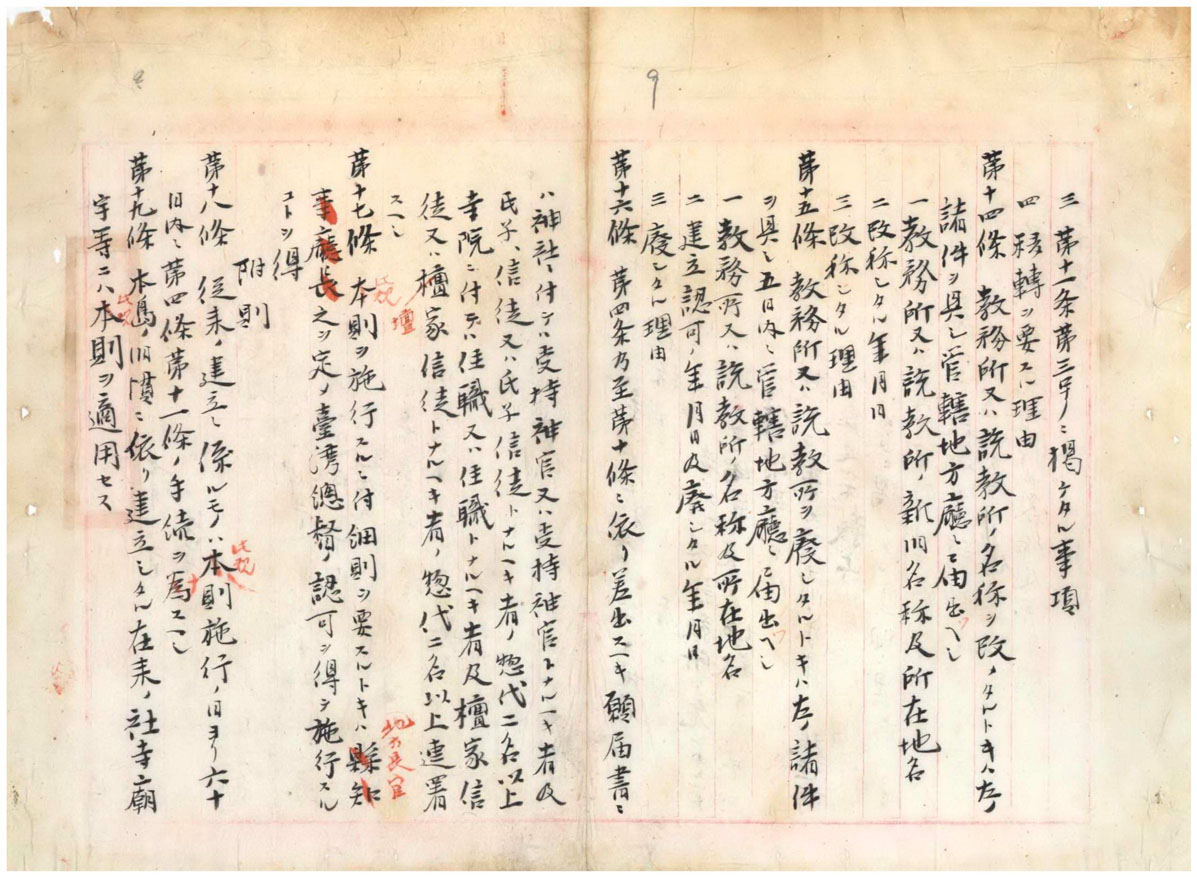 9
三 第十一条第三号ニ掲ケタル事項
四 移轉ヲ要スル理由
第十四條 教務所又ハ説教所ノ名称ヲ改メタルトキハ左ノ
諸件ヲ具シ管轄地方廳ニ届出ヘシ
一 教務所又ハ説教所ノ新旧名称及所在地名
二 改称シタル年月日
三 改称シタル理由
第十五條 教務所又ハ説教所ヲ廃シタルトキハ左ノ諸件
ヲ具シ五日内ニ管轄地方廳ニ届出ヘシ
一 教務所又ハ説教所ノ名称及所在地名
二 建立認可ノ年月日及廃シタル年月日
三 廃シタル理由
第十六條 第四条乃至第十條ニ依リ差出スヘキ願届書ニ
ハ神社ニ付テハ受持神官又ハ受持神官トナルヘキ者及
氏子、信徒又ハ氏子信徒トナルヘキ者ノ惣代二名以上
寺院ニ付テハ住職又ハ住職トナルヘキ者及檀家信
徒又ハ檀家信徒トナルヘキ者ノ惣代二名以上連署
スヘシ
第十七條 本則ヲ施行スルニ付細則ヲ要スルトキハ縣知
地方長官
事廳長之ヲ定メ臺湾總督ノ認可ヲ得テ施行スル
コトヲ得
附則
第十八條 従来ノ建立ニ係ルモノハ本則施行ノ日ヨリ六十
日内ニ第四條第十一條ノ手続ヲ為スヘシ
第十九條 本島ノ旧慣ニ依リ建立シタル在来ノ社寺廟
宇等ニハ本則ヲ適用セス